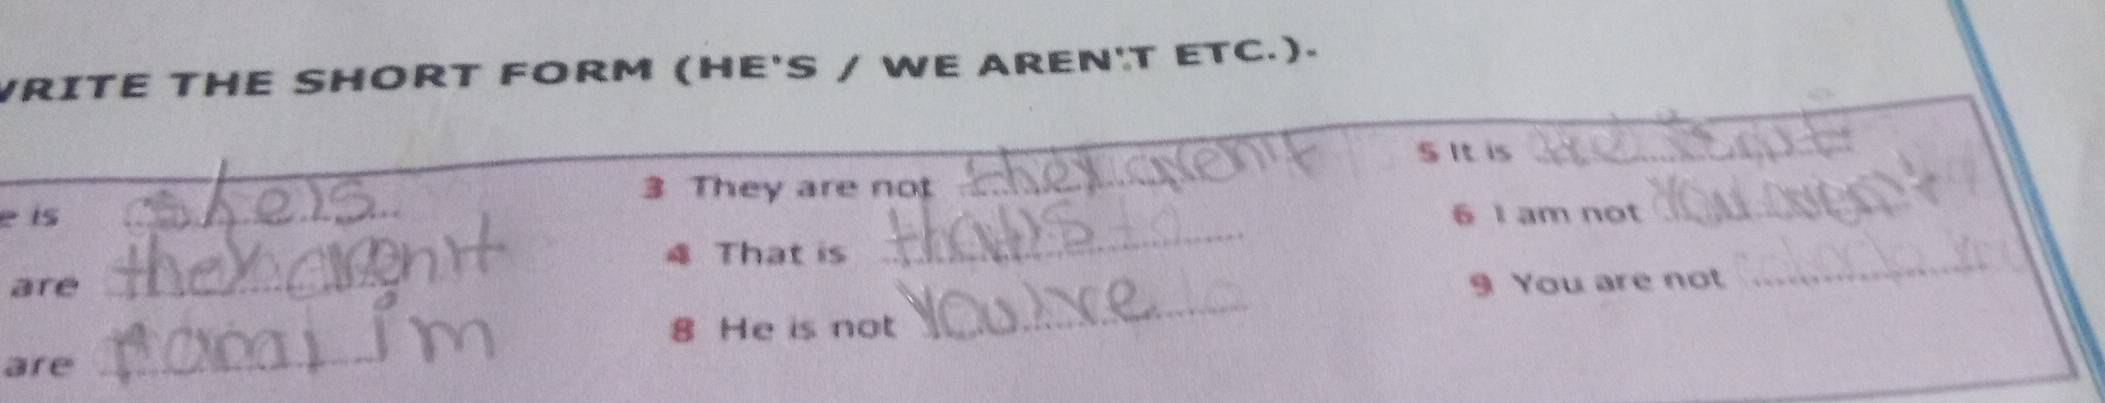 WRITE THE SHORT FORM (HE'S / WE AREN'T ETC.).
e is she's
are they aren't
are i'm
3 They are not they aren't
4 That is that's
8 He is not you're
5 It is
6 I am not You aren't
9 You are not